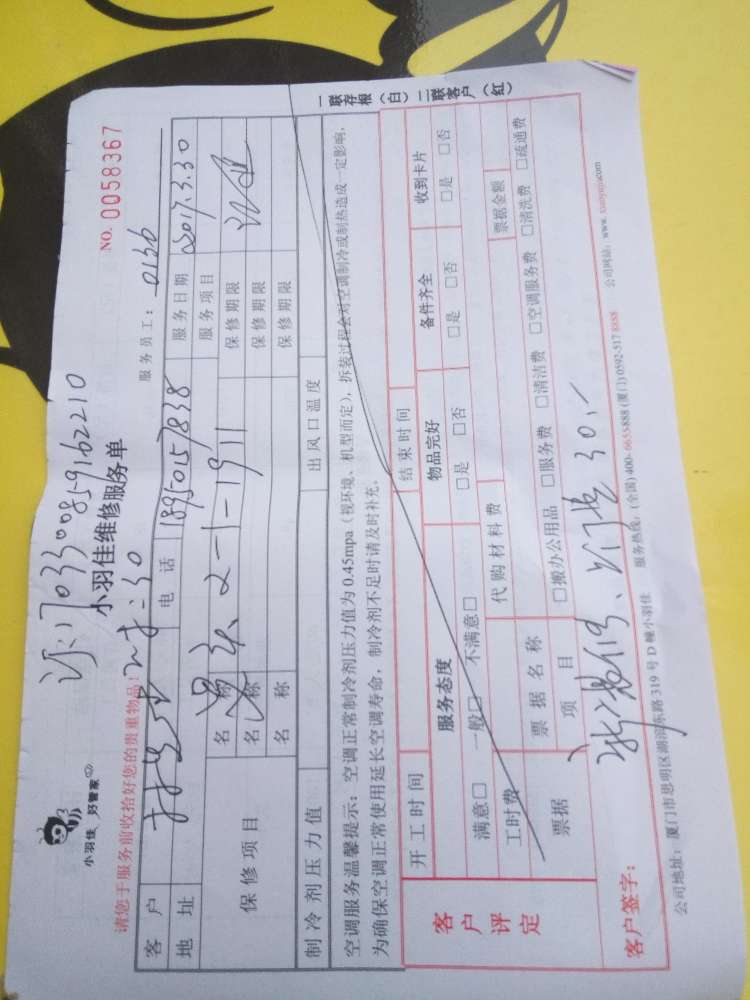 小羽佳 好管家
170330085916 2210
小羽佳维修服务单
NO. 0058367
请您于服务前收拾好您的贵重物品!
服务员工: 0136
客户
电话 18950157838
服务日期 2017.3.30
地址
服务项目
保修项目
名称
保修期限
名称
保修期限
名称
保修期限
制冷剂压力值
出风口温度
空调服务温馨提示:空调正常制冷剂压力值为0.45mpa(视环境、机型而定),拆装过程会对空调制冷或制热造成一定影响,
为确保空调正常使用延长空调寿命,制冷剂不足时请及时补充。
一联存根(白)二联客户(红)
客户评定
开工时间
结束时间
服务态度
物品完好
备件齐全
收到卡片
满意□ 一般□ 不满意□
□是 □否
□是 □否
□是 □否
工时费
代购材料费
票据
票据名称
票据金额
项目
□搬办公用品 □服务费 □清洁费 □空调服务费 □清洗费 □疏通费
客户签字:
30.-
公司地址:厦门市思明区湖滨东路319号D幢小羽佳
服务热线:(全国)400-6655888(厦门)0592-5178888
公司网站:www.xiaoyujia.com